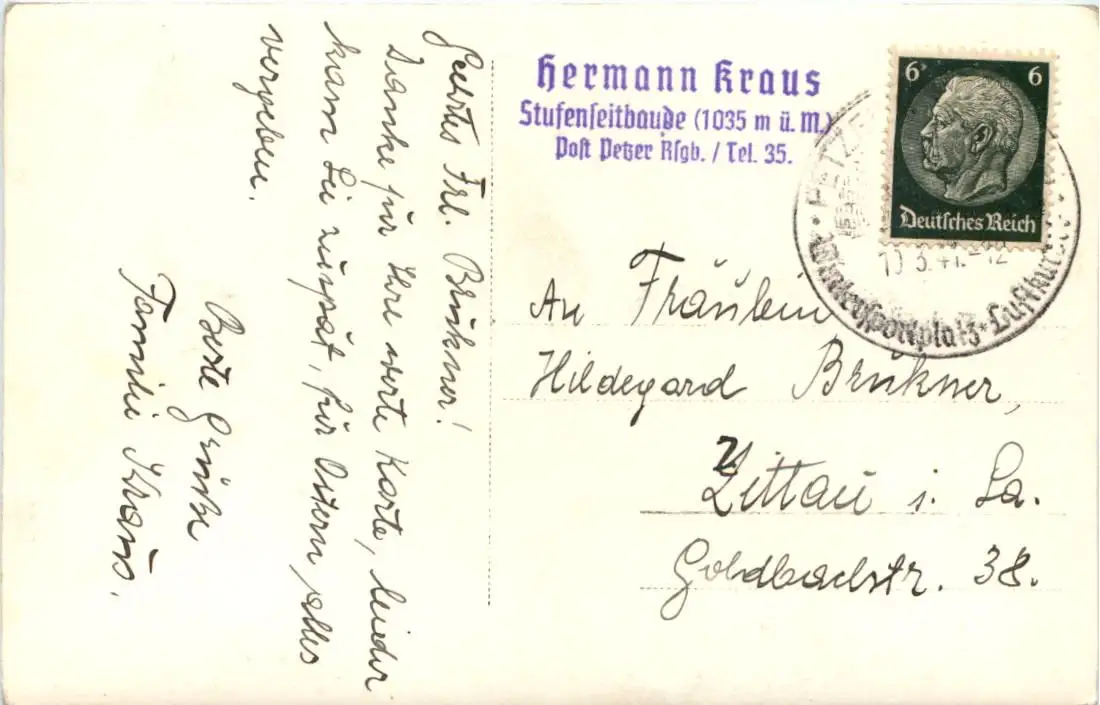 Geehrtes Frl. Brükner!
Danke für Ihre werte Karte, leider
kam Sie zuspät, für Ostern alles
vergeben.
Beste Grüße
Familie Kraus.
Hermann Kraus
Stufenseitbaude (1035 m ü. M.)
Post Petzer Rsgb. / Tel. 35.
6 6
Deutsches Reich
PETZER
3.41.-12
Wintersportplatz * Luftkurort
An Fräulein
Hildegard Brükner,
Zittau i. Sa.
Goldbachstr. 38.